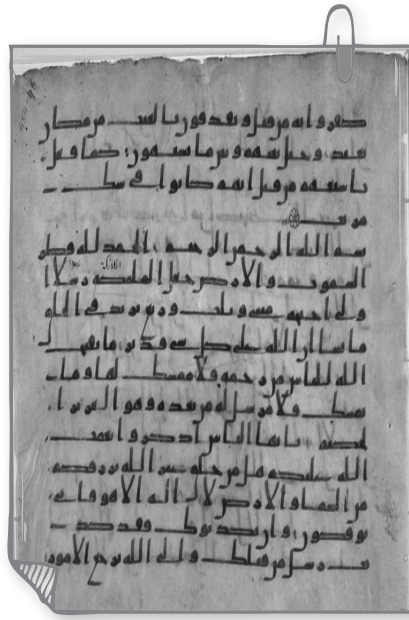 كفروا به من قبل ويقذفون بالغيب من مكان
بعيد وحيل بينهم وبين ما يشتهون كما فعل
باشيعهم من قبل انهم كانوا في شك
مريب
بسم الله الرحمن الرحيم الحمد لله فطر
السموت والارض جعل الملئكة رسلا ا
ولي اجنحة مثنى وثلث وربع يزيد في الخلق
ما يشا ان الله على كل شي قدير ما يفتح
الله للناس من رحمة فلا ممسك لها وما
يمسك فلا مرسل له من بعده وهو العزيز ا
لحكيم يايها الناس اذكروا نعمت
الله عليكم هل من خلق غير الله يرزقكم
من السما والارض لا اله الا هو فانى
توفكون وان يكذبوك فقد كذبت
رسل من قبلك والى الله ترجع الامور